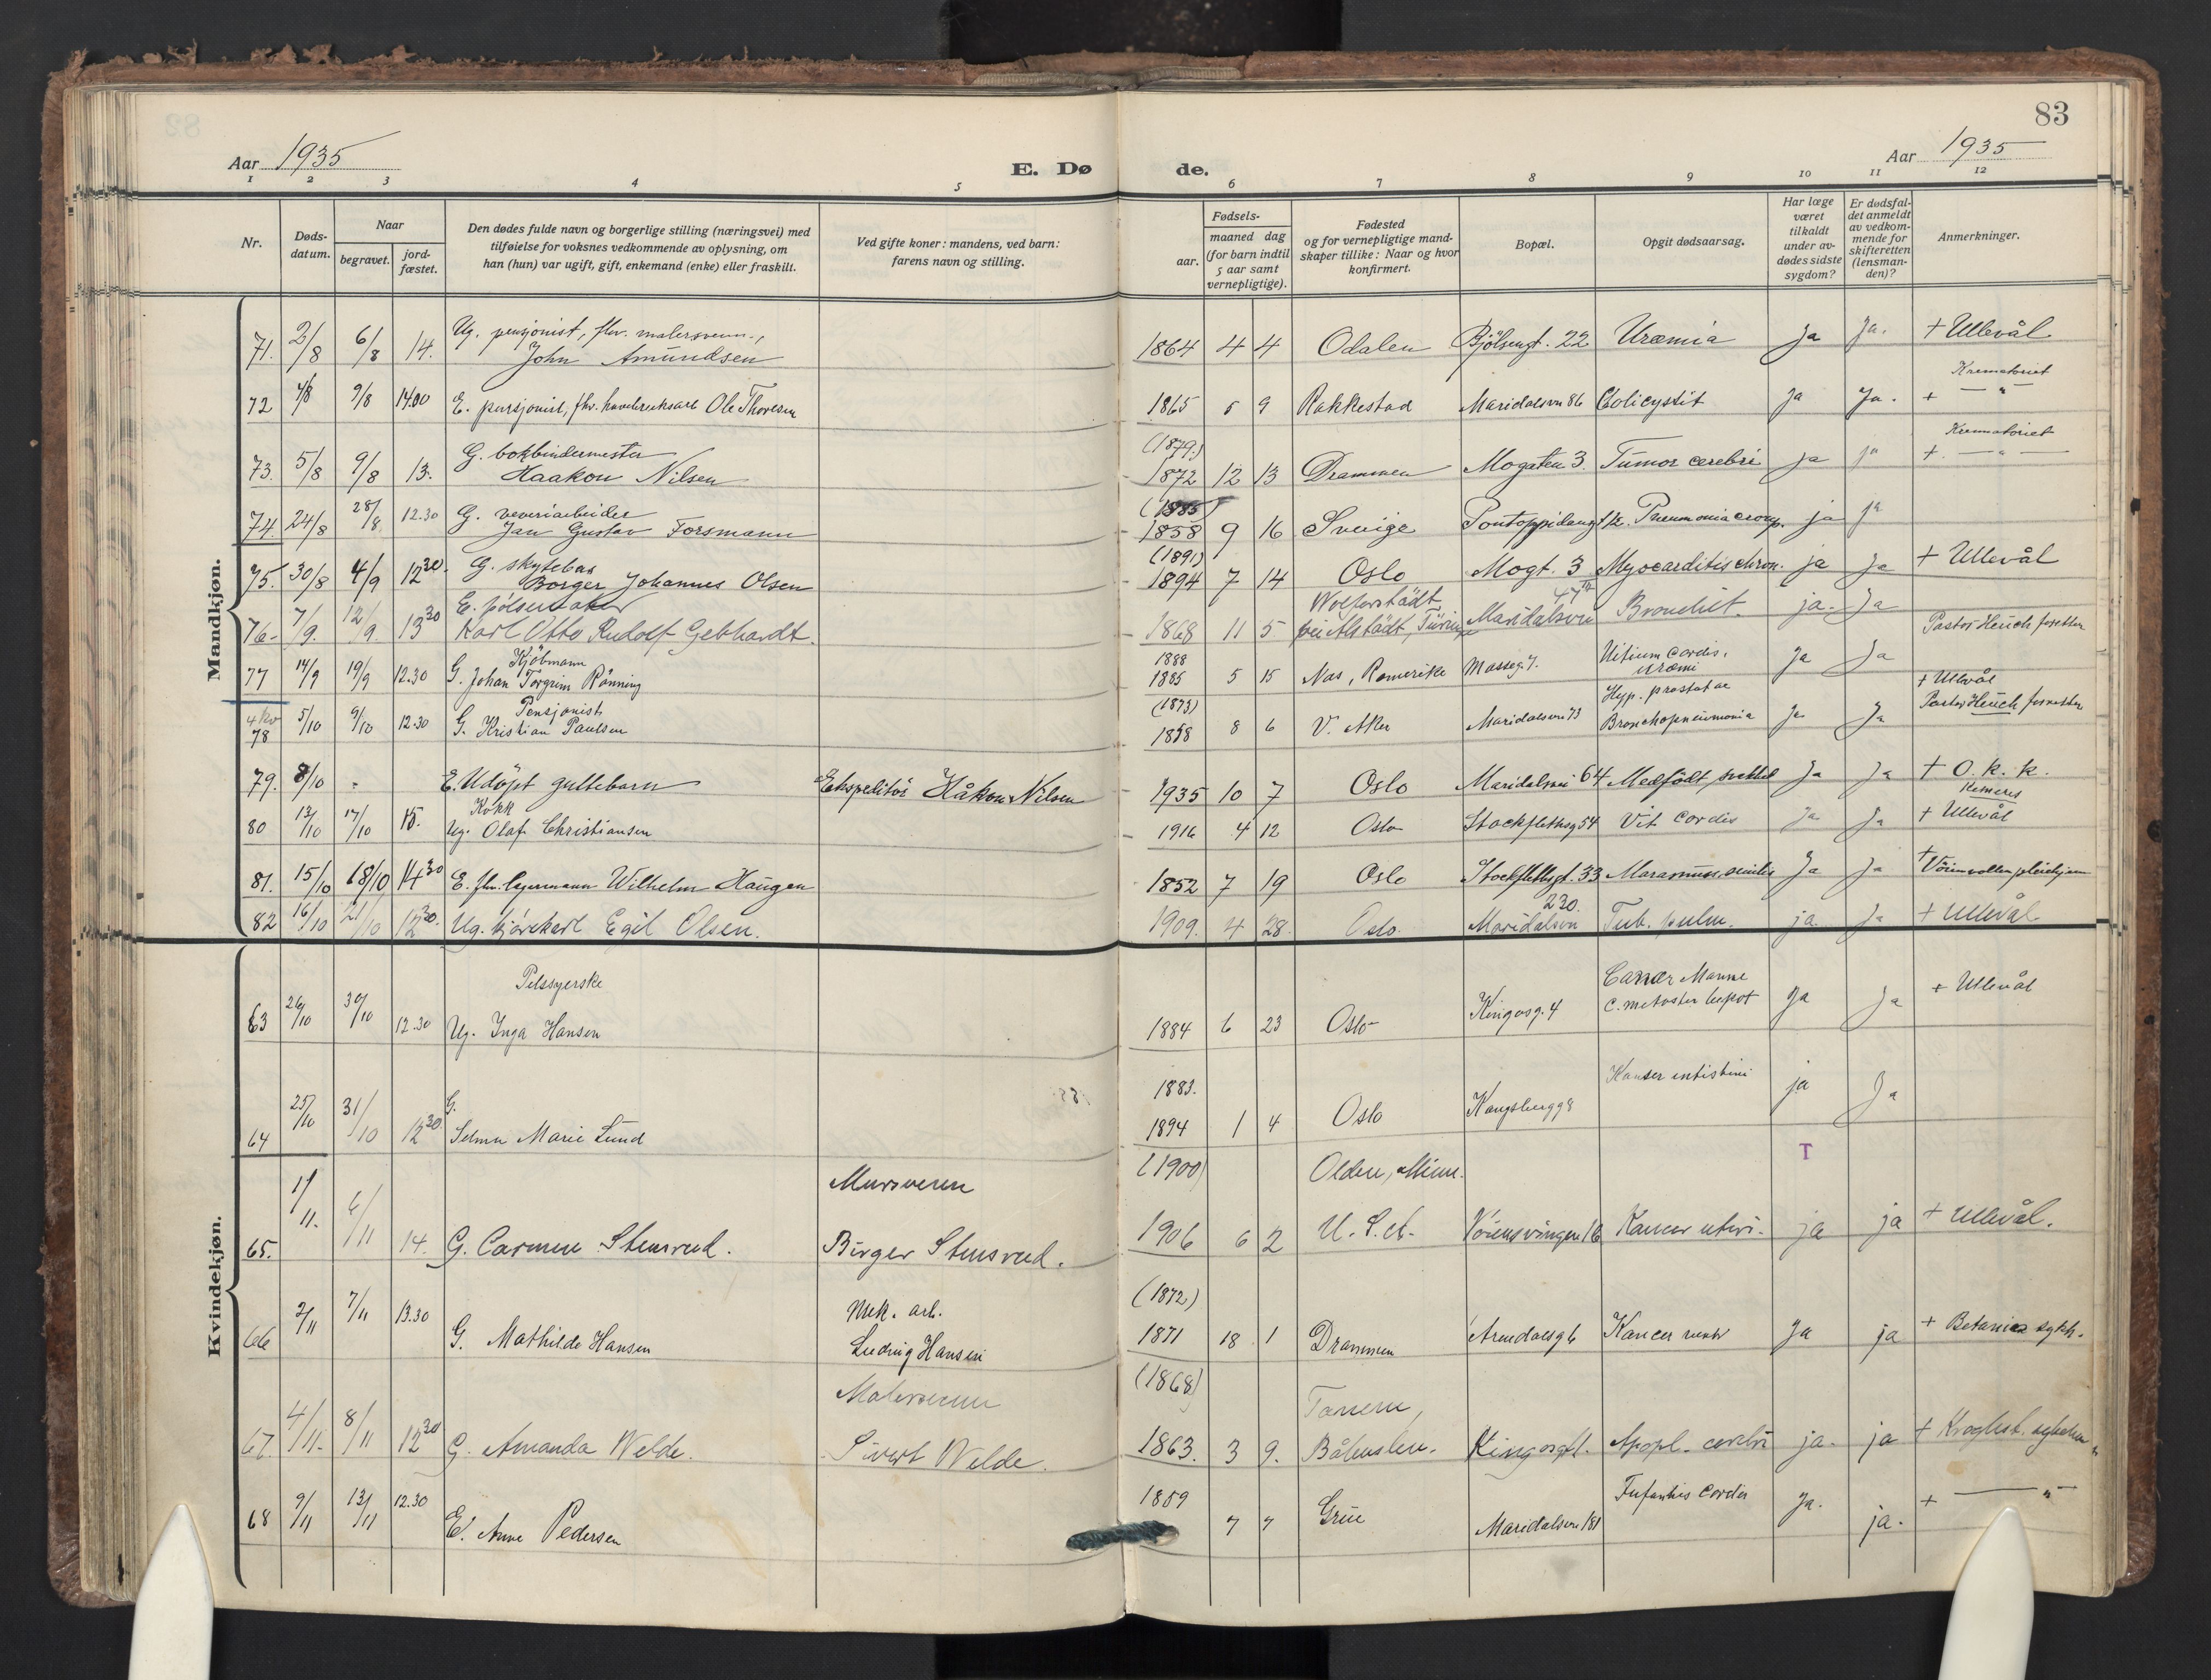 83
Aar 1935
E. Dø
de.
Aar 1935
1 2 3 4 5 6 7 8 9 10 11 12
Nr.
Døds-
datum.
Naar
begravet.
jord-
fæstet.
Den dødes fulde navn og borgerlige stilling (næringsvei) med
tilføielse for voksnes vedkommende av oplysning, om
han (hun) var ugift, gift, enkemand (enke) eller fraskilt.
Ved gifte koner: mandens, ved barn:
farens navn og stilling.
Fødsels-
aar.
maaned dag
(for barn indtil
5 aar samt
vernepligtige).
Fødested
og for vernepligtige mand-
skaper tillike: Naar og hvor
konfirmert.
Bopæl.
Opgit dødsaarsag.
Har læge
været
tilkaldt
under av-
dødes sidste
sygdom?
Er dødsfal-
det anmeldt
av vedkom-
mende for
skifteretten
(lensman-
den)?
Anmerkninger.
Mandkjøn.
Ug. pensjonist, fhv. malersvenn.,
71. 2/8 6/8 14. John Amundsen 1864 4 4 Odalen Bjölsengt. 22 Uræmia Ja Ja. + Ullevål
Krematoriet
72 4/8 9/8 14.00 E. pensjonist, fhv. Ole Thoresen 1865 5 9 Rakkestad Maridalsvn 86 Colicystit Ja Ja. + — " —
G. bokbindermester (1879.) Krematoriet
73. 5/8 9/8 13. Haakon Nilsen 1872 12 13 Drammen Mogaten 3. Tumor cerebri ja ja +. — " —
G. veveriarbeider (1885)
74. 24/8 28/8 12.30 Jan Gustav Forsmann 1858 9 16 Sverige Pneumonia croup. ja ja
G. skytebas (1891)
75. 30/8 4/9 12 30 Borger Johannes Olsen 1894 7 14 Oslo Mogt. 3 Myocarditis chron. ja ja + Ullevål
E. pølsemaker Wolferstädt 47
76. 7/9. 12/9. 13 30 Karl Otto Rudolf Gebhardt. 1868 11 5. Maridalsvn Bronchit. ja. Ja
Pastor Heuch forretter
Kjöbmann 1888 Vitium cordis,
77 14/9 19/9 12.30 G. Johan Torgrim Rönning 1885 5 15 Nas, Romerike Mosseg. 7. uræmi Ja Ja
+ Ullevål
Pensjonist (1873) Hyp. prostatae
4 kv
78 5/10 9/10 12.30 G. Kristian Paulsen 1858 8 6 V. Aker Maridalsvn 73 Bronchopneumonia Ja Ja Pastor Heuch forretter
79. 8/10 - E. Udöpt guttebarn Ekspeditör Håkon Nilsen 1935 10 7 Oslo Maridalsvn 64 Medfödt svakhet Ja Ja + O. k. k.
Kokk
80 13/10 17/10 15. Ug. Olaf Christiansen 1916 4 12 Oslo Stockflethsg 54 Vit cordis Ja Ja + Ullevål
81. 15/10 18/10 14 30 E. fhv. lagermann Wilhelm Haugen 1852 7 19 Oslo Stockflethsgt. 33 Marasmus senilis Ja Ja + Vöienvollen pleiehjem
230.
82 16/10 21/10 12 30. Ug. kjörekarl Egil Olsen. 1909. 4 28. Oslo. Maridalsvn Tub. pulm. ja. Ja + Ullevål
Kvindekjøn.
Pelssyerske
63 26/10 30/10 12.30 Ug. Inga Hansen 1884 6 23 Oslo Kingosg. 4 Ja Ja + Ullevål
G. 1883.
64 25/10 31/10 12 30 Selma Marie Lund 1894 1 4 Oslo Kongsbergg 8 Kanser intistini ja Ja
T
Mursvenn (1900) Olden, Minn.
65. 1/11. 6/11 14. G. Carmen Stensrud. Birger Stensrud. 1906 6 2 U. S. A. Vöiensvingen 16 Kancer uteri. ja ja + Ullevål.
Mek. arb. (1872)
66 2/11 7/11 13.30 G. Mathilde Hansen Ludvig Hansen 1871 18 1 Drammen Arendalsg 6 Kancer Ja ja + Betania sykh.
Malersvenn (1868)
67. 4/11. 8/11 12 30 G. Amanda Welde. Sivert Welde. 1863. 3 9. Båhuslen. Kingosgt. Apopl. cerebri ja. ja
68 9/11 13/11 12.30 E. Anne Pedersen 1859 7 7 Grue Maridalsvn 181 cordis Ja. ja. + — " —